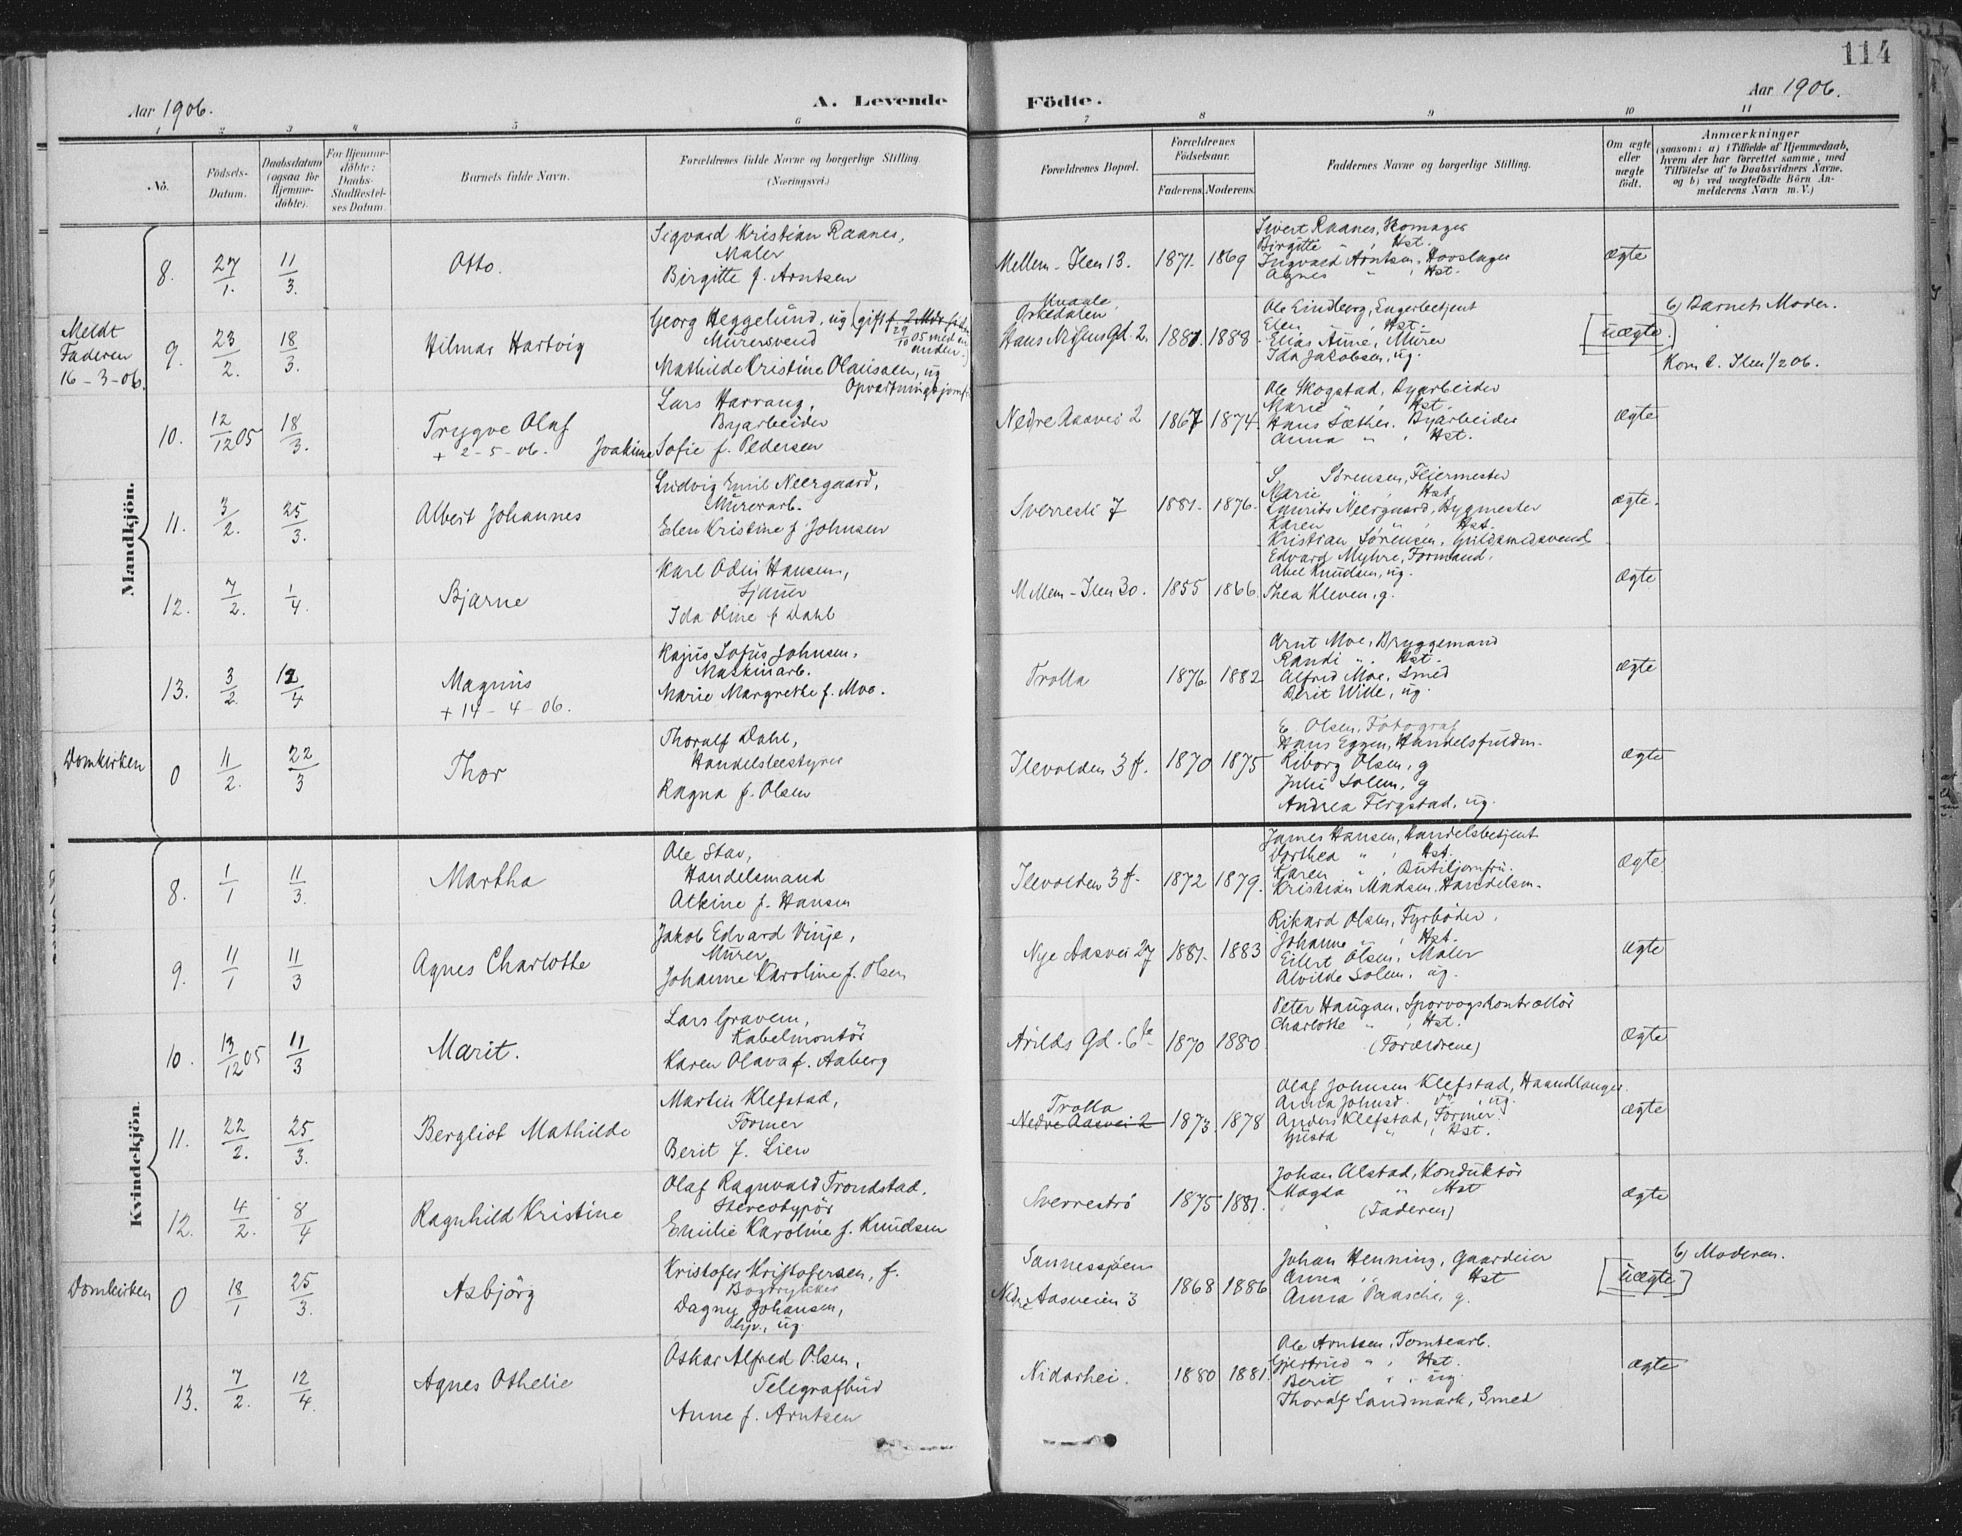 114
Aar 1906.
A. Levende
Födte.
Aar 1906.
1 2 3 4 5 6 7 8 9 10 11
No.
Födsels-Datum.
Daabsdatum (ogsaa for Hjemme-döbte).
For Hjemme-döbte: Daabs-Stadfæstel-ses Datum.
Barnets fulde Navn.
Forældrenes fulde Navne og borgerlige Stilling.
(Næringsvei.)
Forældrenes Bopæl.
Forældrenes Födselsaar.
Faderens. Moderens.
Faddernes Navne og borgerlige Stilling.
Om ægte eller uægte födt.
Anmærkninger
(saasom: a) i Tilfælde af Hjemmedaab, hvem der har forrettet samme, med Tilföielse af to Daabsvidners Navne, og b) ved uægtefödte Börn An-melderens Navn m. V.)
Mandkjön.
8. 27/1. 11/3. Otto.
Sigvard Kristian Raanes,
Maler
Birgitte f. Arntsen
Mellem-Ilen 13. 1871. 1869
Sivert Raanes, Skomager
Birgitte " , Hst.
Ingvald Arntsen, Hovslager
Agnes " , Hst.
ægte
Meldt
Faderen
16-3-06.
9. 23/2. 18/3. Hilmar Hartvig
Georg Heggelund, ug (gift
29/10 05 med en anden.)
Murersvend
Mathilde Kristine Olausen, ug
Opvartningsjomfr.
Orkedalen
Hans Nissens Gd. 2. 1881. 1888
Ole Lindberg, Engerbetjent
Elen " , Hst.
Elias Aune, Murer
Ida Jakobsen, ug.
[uægte.]
b) Barnets Moder.
Kom t. Ilen 1/2 06.
10. 12/12 05 18/3. Trygve Olaf
+ 2-5-06.
Lars Harrang,
Byarbeider
Joakime Sofie f. Pedersen
Nedre Aasvei 2 1867 1874.
Ole Skogstad, Byarbeider
Marie " , Hst.
Hans Sæther, Byarbeider
Anna " , Hst.
ægte
11. 3/2. 25/3. Albert Johannes
Ludvig Emil Neergaard,
Murerarb.
Elen Kristine f. Johnsen
Sverresli 7 1881. 1876.
S. Sørensen, Feiermester
Marie " , Hst.
Laurits Neergaard, Bygmester
Karen " , Hst.
Kristian Sørensen, Guldsmedsvend
ægte.
12. 7/2. 1/4. Bjarne
Karl Odin Hansen,
Sjauer
Ida Oline f. Dahl
Mellem-Ilen 30. 1855 1866.
Edvard Myhre, Formand.
Abel Knudsen, ug.
Thea Kleven, g.
ægte
13. 3/2. 12/4 Magnus
+ 14-4-06.
Kajus Sofus Johnsen,
Maskinarb.
Marie Margrethe f. Moe.
Trolla 1876 1882
Arnt Moe, Bryggemand
Randi " . Hst.
Alfred Moe, Smed
Berit Wille, ug.
ægte
Domkirken
0 11/2. 22/3 Thor
Thoralf Dahl,
Handelsbestyrer
Ragna f. Olsen
Ilevolden 3 f. 1870 1875
E. Olsen, Fotograf
Hans Eggen, Handelsfuldm.
Riborg Olsen, g
Julie Solem, g
Andrea Fergstad, ug.
ægte
Kvindekjön.
8. 1/1 11/3. Martha
Ole Stav,
Handelsmand
Alkine f. Hansen
Ilevolden 3 f. 1872 1879.
James Hansen, Handelsbetjent
Dorthea " , Hst.
Karen " , Butikjomfru.
Kristian Madsen, Handelsm.
ægte
9. 11/1 11/3 Agnes Charlotte
Jakob Edvard Vinje,
Murer
Johanne Karoline f. Olsen
Nye Aasvei 27 1881. 1883
Rikard Olsen, Fyrbøder.
Johanne " , Hst.
Eilert Olsen, Maler
Alvilde Solem, ug.
ægte
10. 13/12 05 11/3 Marit.
Lars Gravem,
Kabelmontör
Karen Olava f. Aaberg
Arilds Gd. 6 b 1870 1880
Peter Haugan, Sporvogskontrollör
Charlotte " , Hst.
(Forældrene)
ægte
11. 22/2. 25/3. Bergliot Mathilde
Martin Klefstad,
Former
Berit f. Lien
Trolla
Nedre Aasvei 2 1873. 1878
Olaf Johnsen Klefstad, Haandlanger.
Anna Johnsd. do , ug.
Anders Klefstad, Former
Gusta " , Hst.
ægte
12. 4/2. 8/4 Ragnhild Kristine
Olaf Ragnvald Trondstad.
Stereotypör
Emilie Karoline f. Knudsen
Sverresbrö 1875 1881.
Johan Alstad, Konduktör
Magda " Hst
(Faderen)
ægte
Domkirken
0 18/1 25/3. Asbjörg
Kristofer Kristofersen, f.
Bogtrykker
Dagny Johansen,
Syr., ug.
Sannessjöen
Nedre Aasveien 3 1868 1886
Johan Henning, Gaardeier
Anna " Hst
Anna Paasche, g.
[uægte]
b) Moderen.
13. 7/2. 12/4. Agnes Othelie
Oskar Alfred Olsen,
Telegrafbud
Anne f. Arntsen
Nidarhei. 1880 1881.
Ole Arntsen, Tomtearb.
Gjertrud " , Hst.
Berit " , ug.
Thoralf Landmark, Smed
ægte